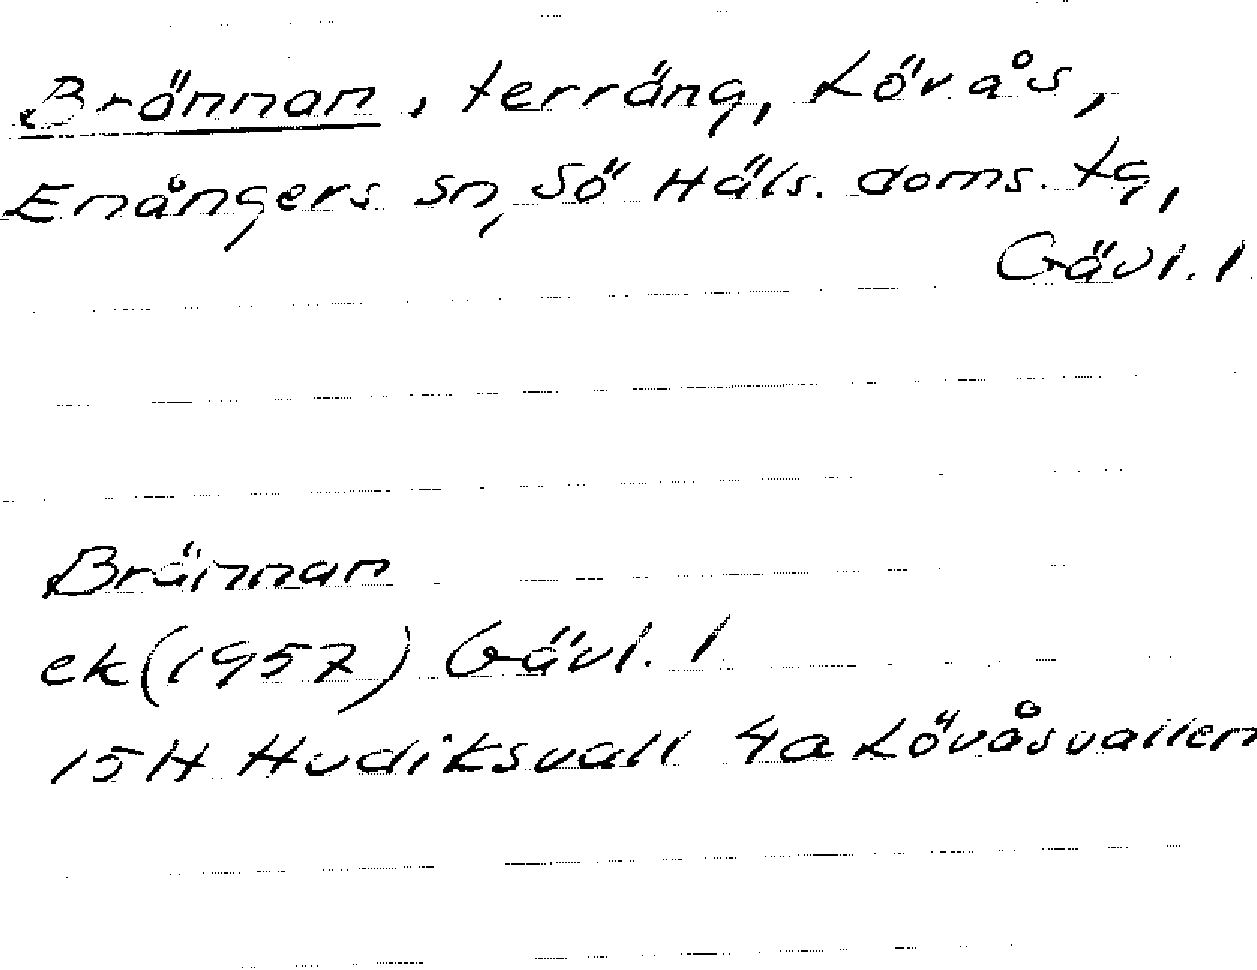 Brännan, terräng, Lövås,
Enångers sn, Sö Häls. doms. tg,
Gävl. l
Brännan
ek (1957) Gävl. l
15H Hudiksvall 4a Lövåsvallen